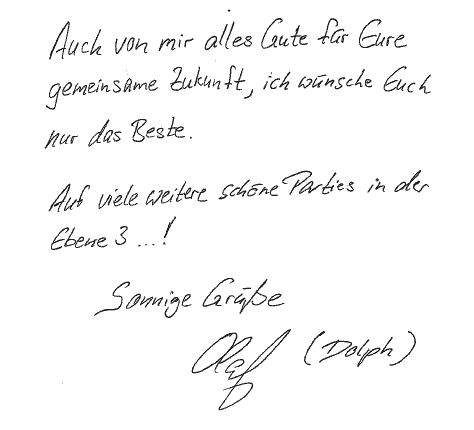 Auch von mir alles Gute für Eure
gemeinsame Zukunft, ich wünsche Euch
nur das Beste.
Auf viele weitere schöne Parties in der
Ebene 3 ...!
Sonnige Grüße
Olaf (Dolph)